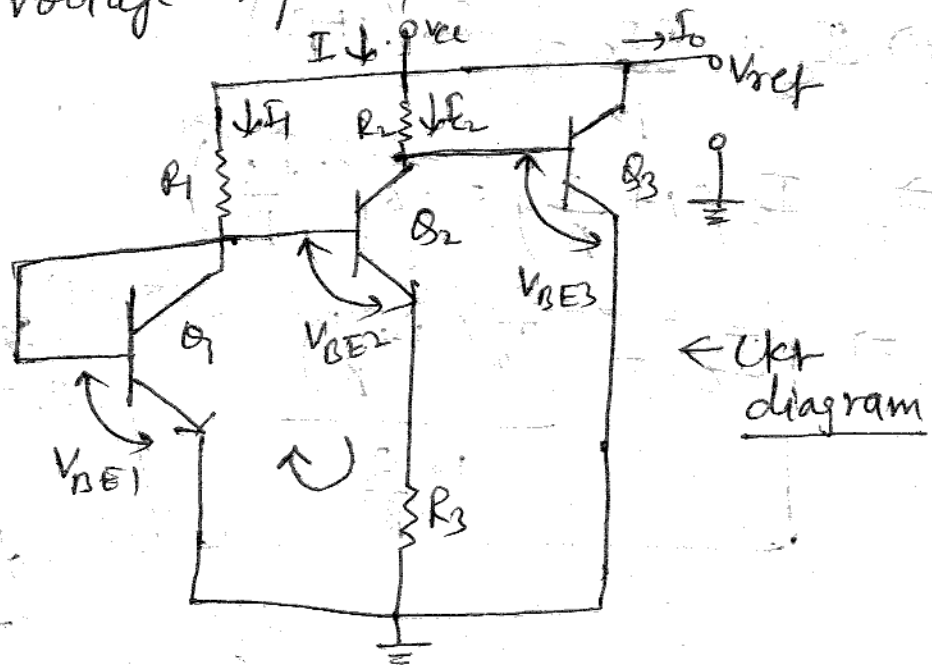 voltage
I
Vcc
I0
Vref
I1
R2
I2
R1
Q2
Q3
VBE3
VBE2
Q1
← Ckt
diagram
VBE1
R3